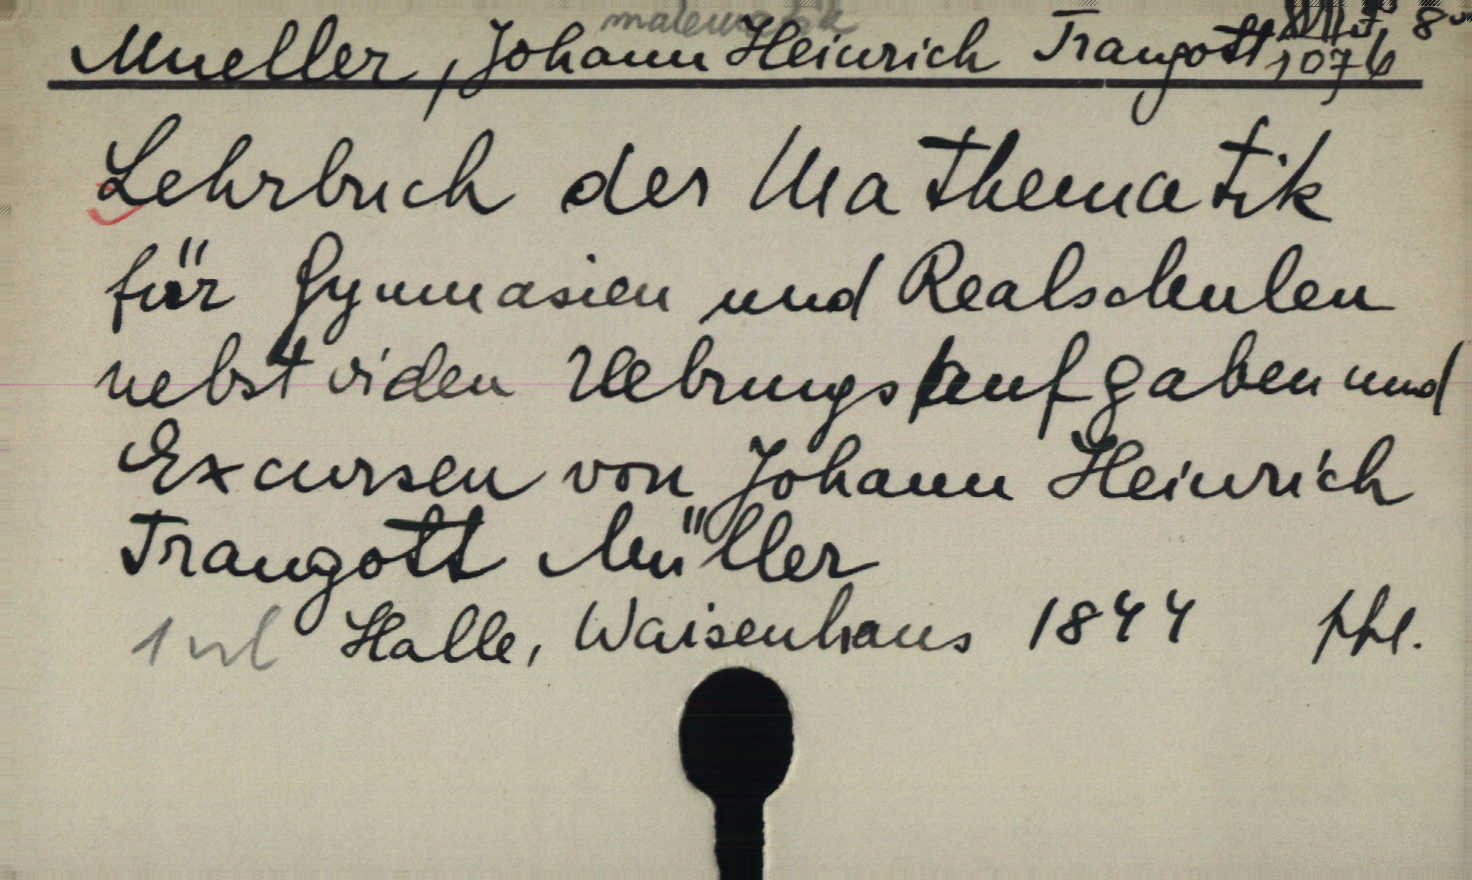 Mueller, Johann Heinrich Traugott 8°
1076
Lehrbuch der Mathematik
für Gymnasien und Realschulen
nebst vielen Uebungsaufgaben und
Excursen von Johann Heinrich
Traugott Müller
1 vol Halle, Waisenhaus 1844 ppl.